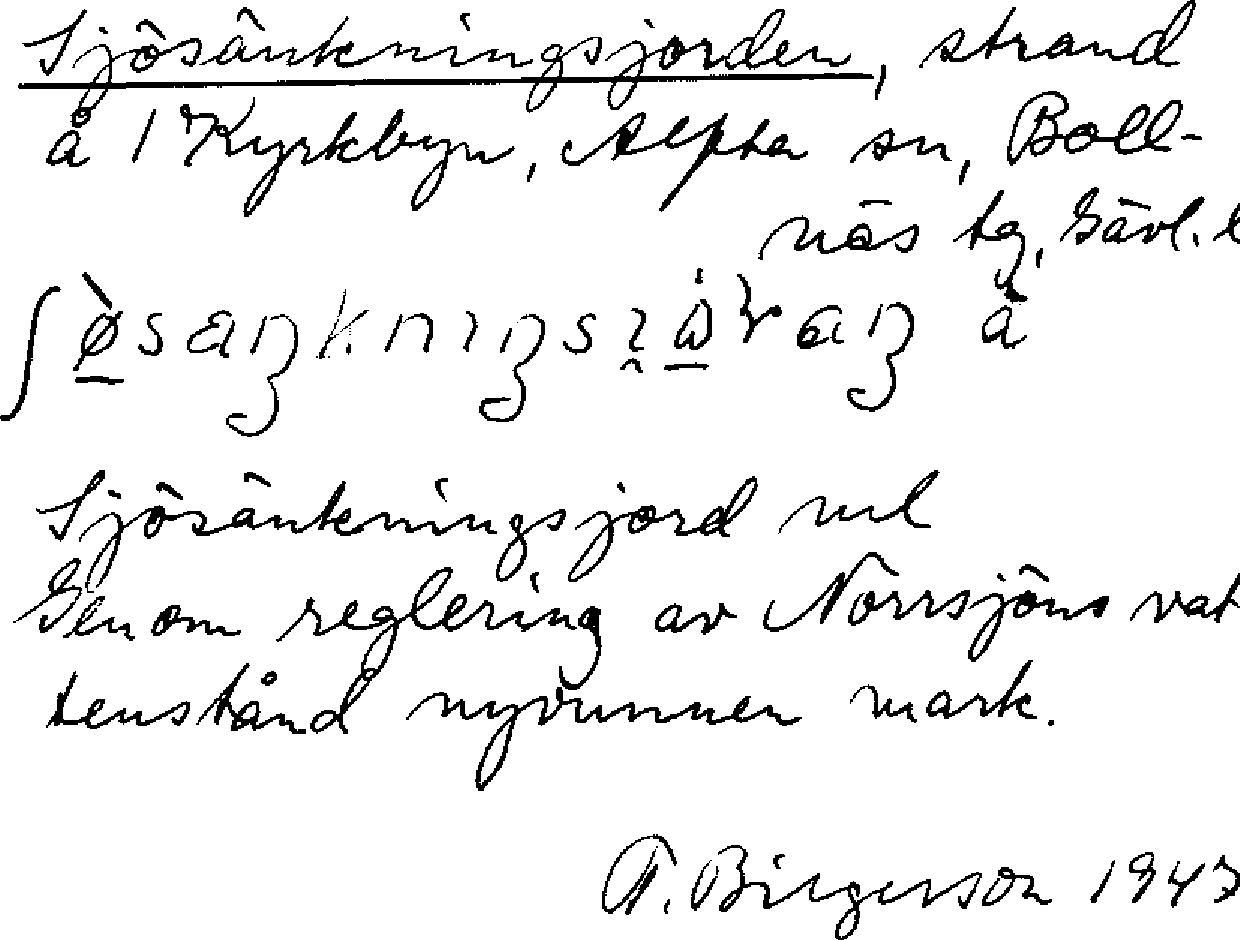 Sjösänkningsjorden, strand
å 1 Kyrkbyn, Alfta sn, Boll-
näs tg, Gävl. l
å
Sjösänkningsjord
Genom reglering av Norrsjöns vat
tenstånd nyvunnen mark.
T. Birgerson 1947